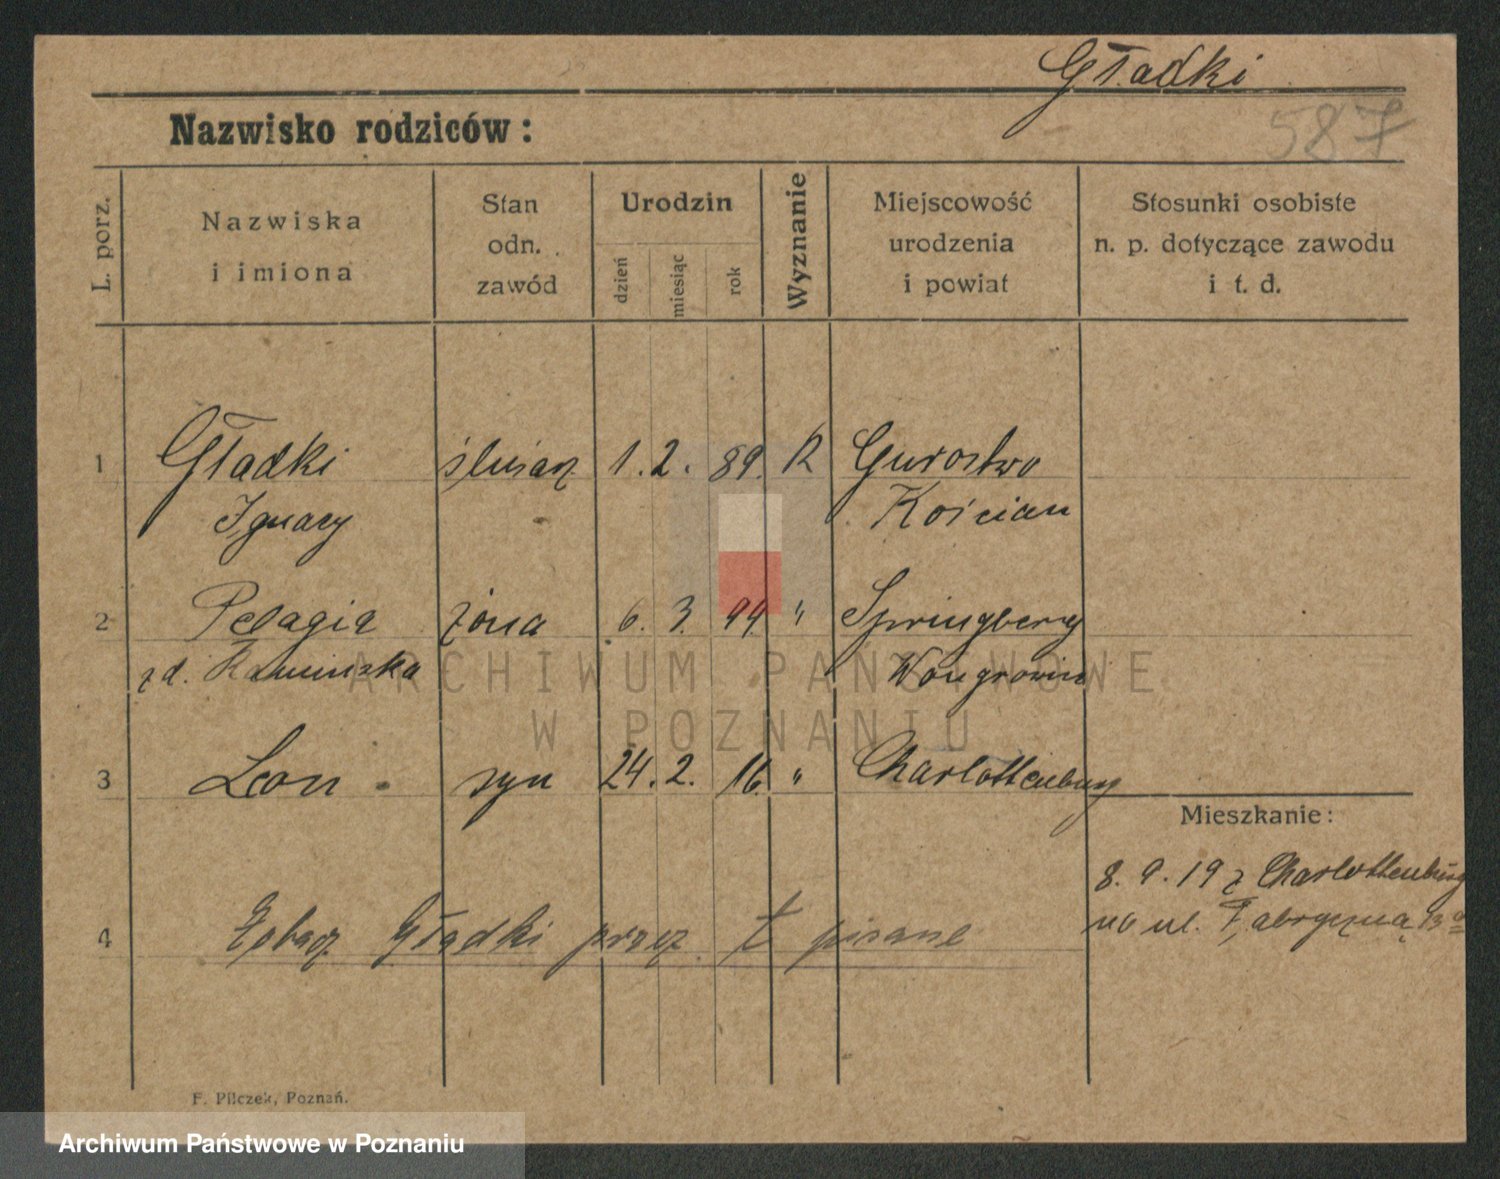 Gładki
587
Nazwisko rodziców:
L. porz.
Nazwiska
i imiona
Stan
odn.
zawód
Urodzin
dzień
miesiąc
rok
Wyznanie
Miejscowość
urodzenia
i powiat
Stosunki osobiste
n. p. dotyczące zawodu
i t. d.
1 Gładki ślusarz 1. 2. 89. R Gurostwo
Ignacy Kościan
2 Pelagia żona 6. 3. 99. " Springberg
zd. Kamińska Wongrowiec
3 Leon syn 24. 2. 16. " Charlottenburg
Mieszkanie:
8. 9. 19 z Charlottenburg
na ul. Fabryczną 13
4 Zobacz Gładki przez t pisane
F. Pilczek, Poznań.
ARCHIWUM PAŃSTWOWE
W POZNANIU
Archiwum Państwowe w Poznaniu